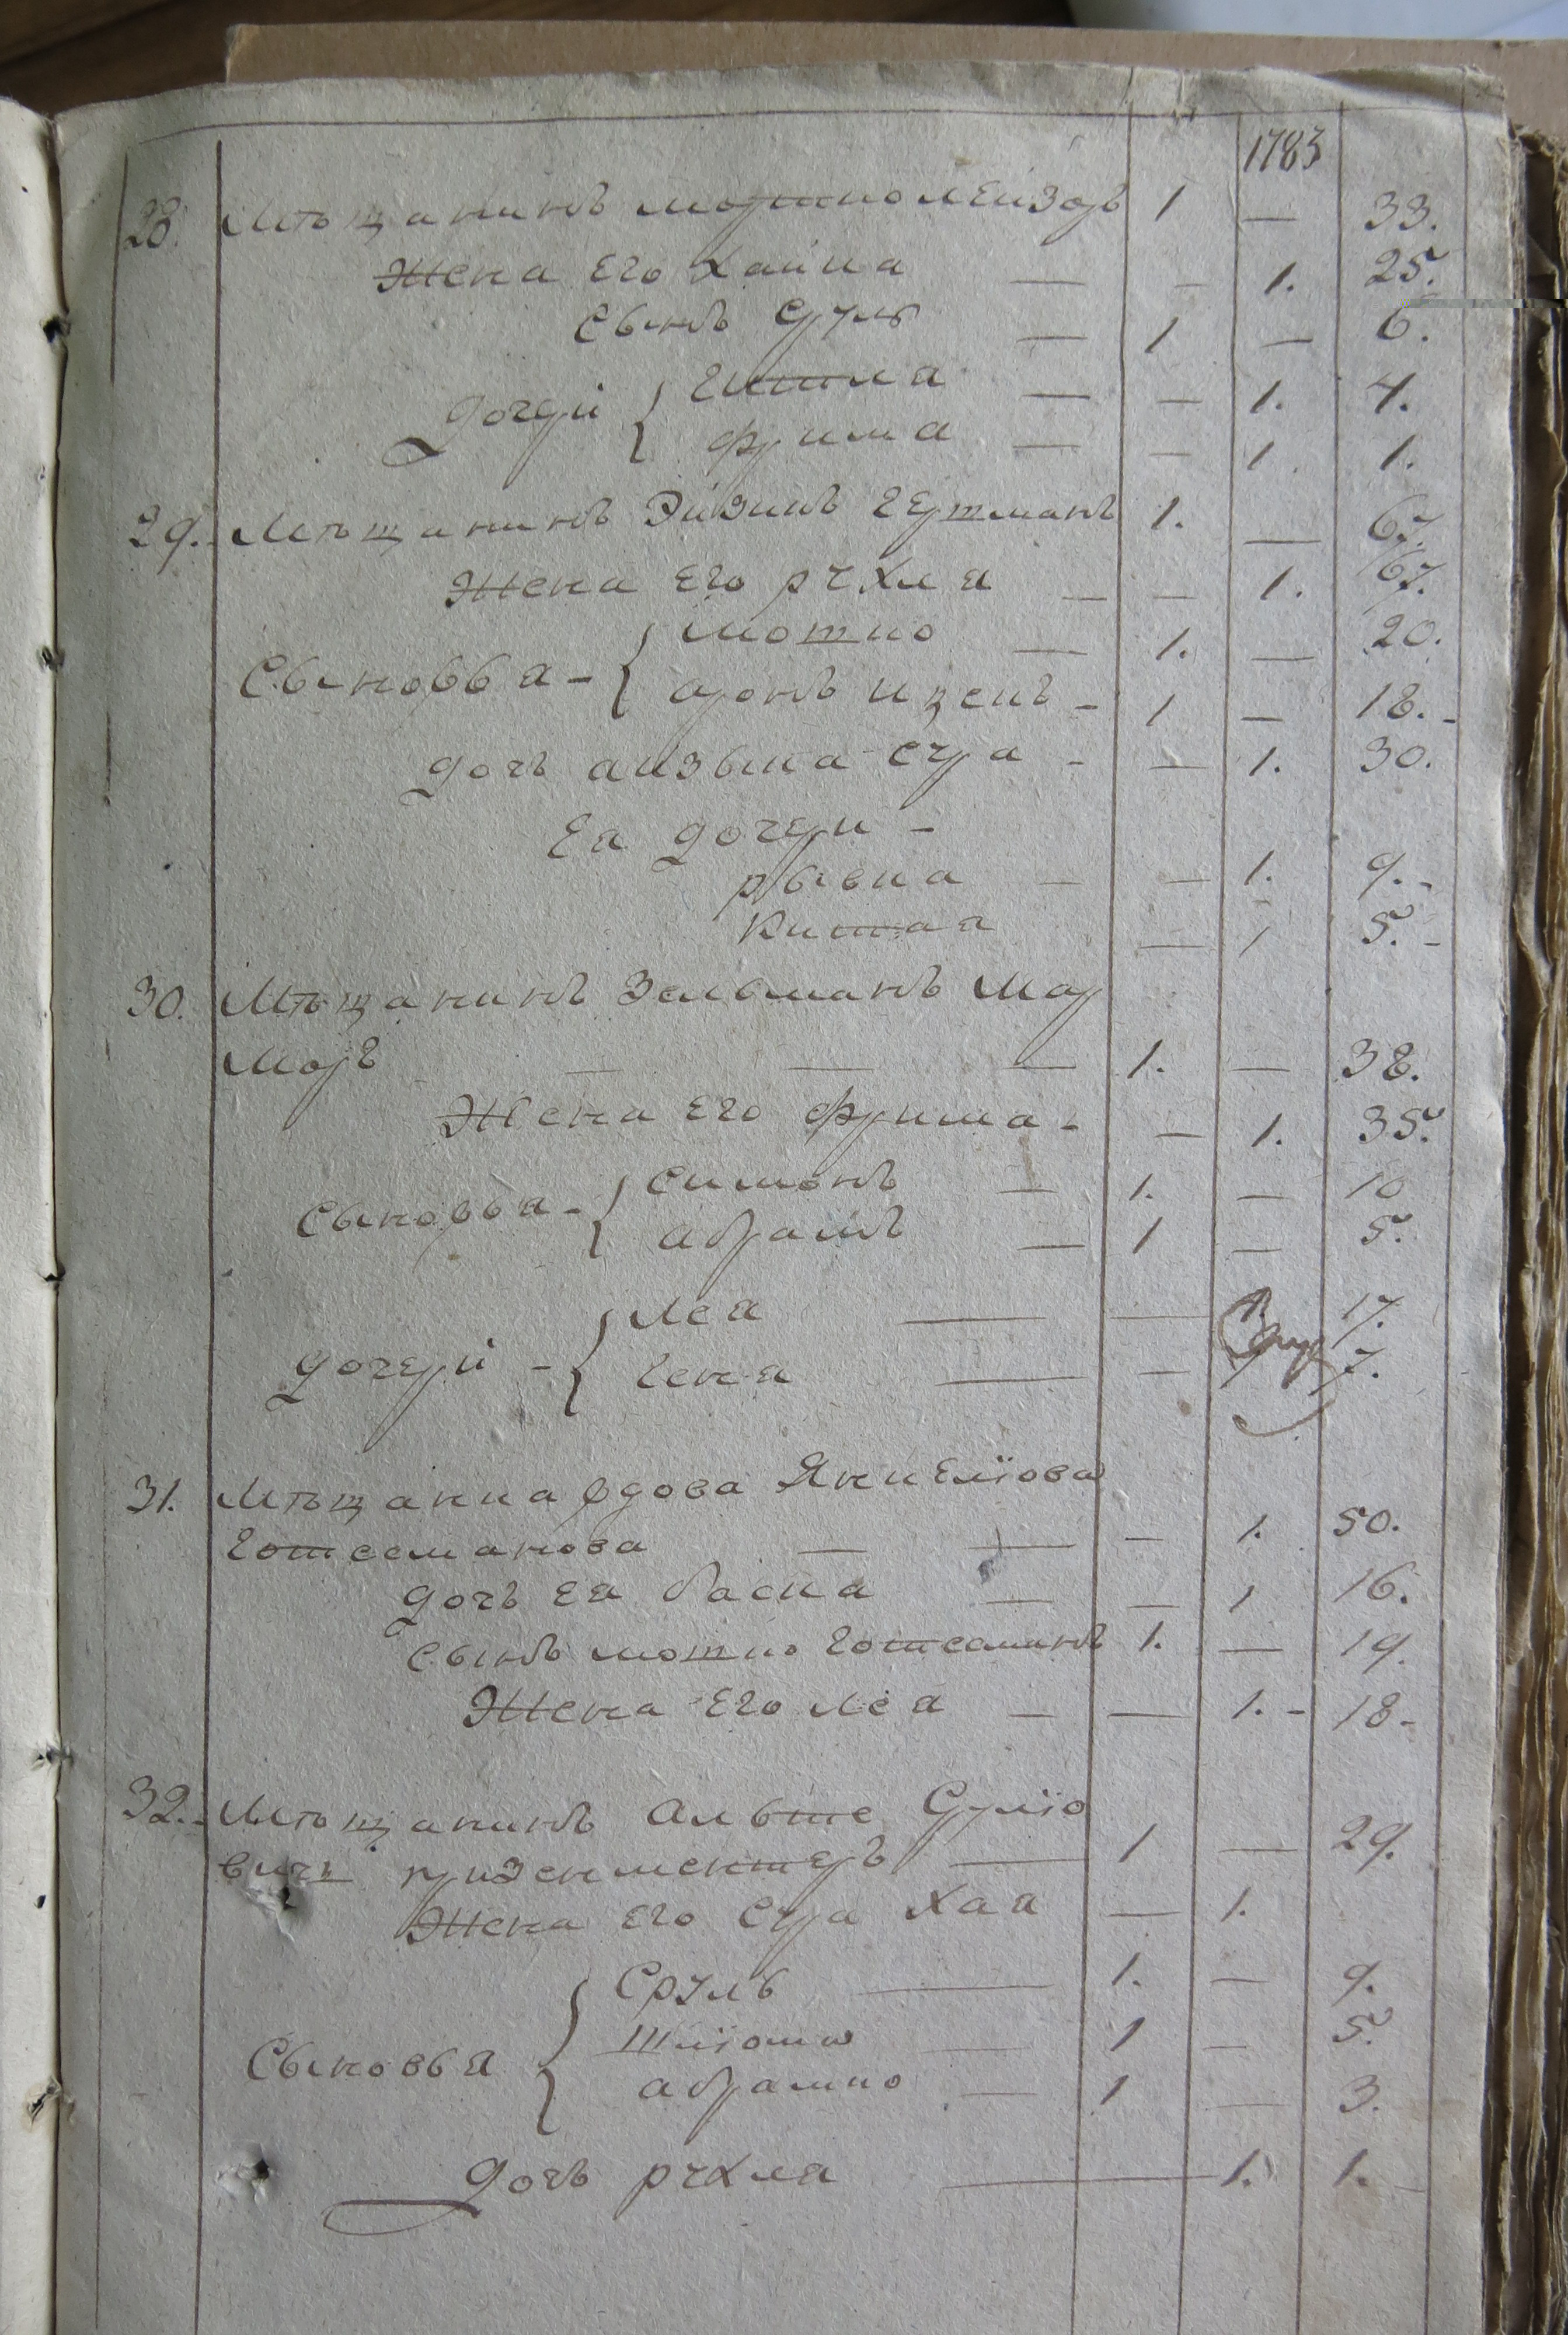 1783
28. Мѣщанинъ мортко лейзоръ 1 — 33.
Жена Его хайка — — 1. 25.
Сынъ Сруль — 1 — 6.
дочери { Гитла — — 1. 4.
фрима — — 1. 1.
29. Мѣщанинъ Эйзикъ Гертманъ 1. — 67.
Жена Его рухля — — 1. 67.
Сыновья - { мотко — 1. — 20.
аронъ ицекъ - 1 — 18. -
дочь айзыка сура - — 1. 30.
Ея дочери -
рывка — — 1. 9. -
Китая — 1 5. -
30. Мѣщанинъ Зельманъ Мар
моръ — — — 1. — 38.
Жена Его фрима - — 1. 35.
сыновья - { симонъ — 1. — 10
абрамъ — 1 — 5.
дочери - { Лея — — 1. 17.
Геня — — 1 7.
31. Мѣщанка вдова Янкелїова
Готсеманова — — — 1. 50.
дочь ея баска — — 1 16.
сынъ мотко Готсеманъ 1. — 19.
Жена Его лея — — 1. - 18 -
32. Мѣщанинъ Альте Срулїо
вичъ призенментеръ — 1 — 29.
Жена Его Сура Хая — 1.
Сыновья { Сруль — 1. — 9.
Шлїома — 1 — 5.
абрамко — 1 — 3.
дочь рухля — 1. 1. -